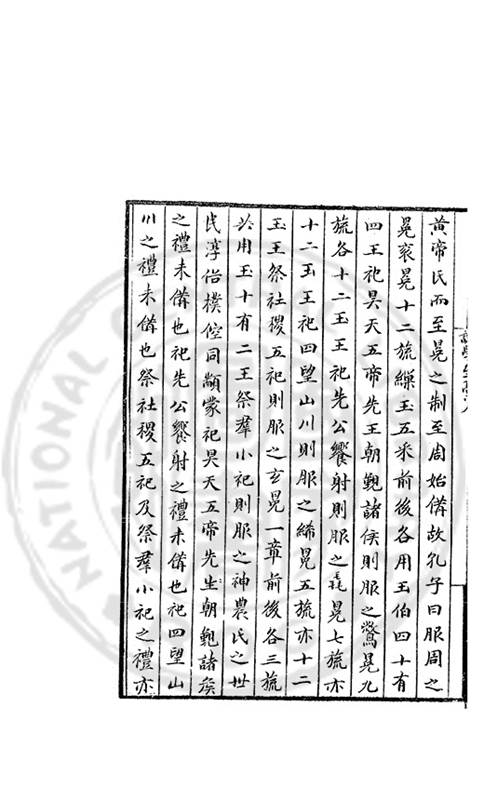 黄帝氏而至冕之制至周始備故孔子曰服周之
冕衮冕十二旒繅玉五采前後各用玉伯四十有
四王祀昊天五帝先王朝覲諸侯則服之鷩冕九
旒各十二玉王祀先公饗射則服之毳冕七旒亦
十二玉王祀四望山川則服之絺冕五旒亦十二
玉王祭社稷五祀則服之玄冕一章前後各三旒
共用玉十有二王祭羣小祀則服之神農氏之世
民淳俗樸倥同顓蒙祀昊天五帝先生朝覲諸矦
之禮未備也祀先公饗射之禮未備也祀四望山
川之禮未備也祭社稷五祀及祭羣小祀之禮亦
NATIONAL